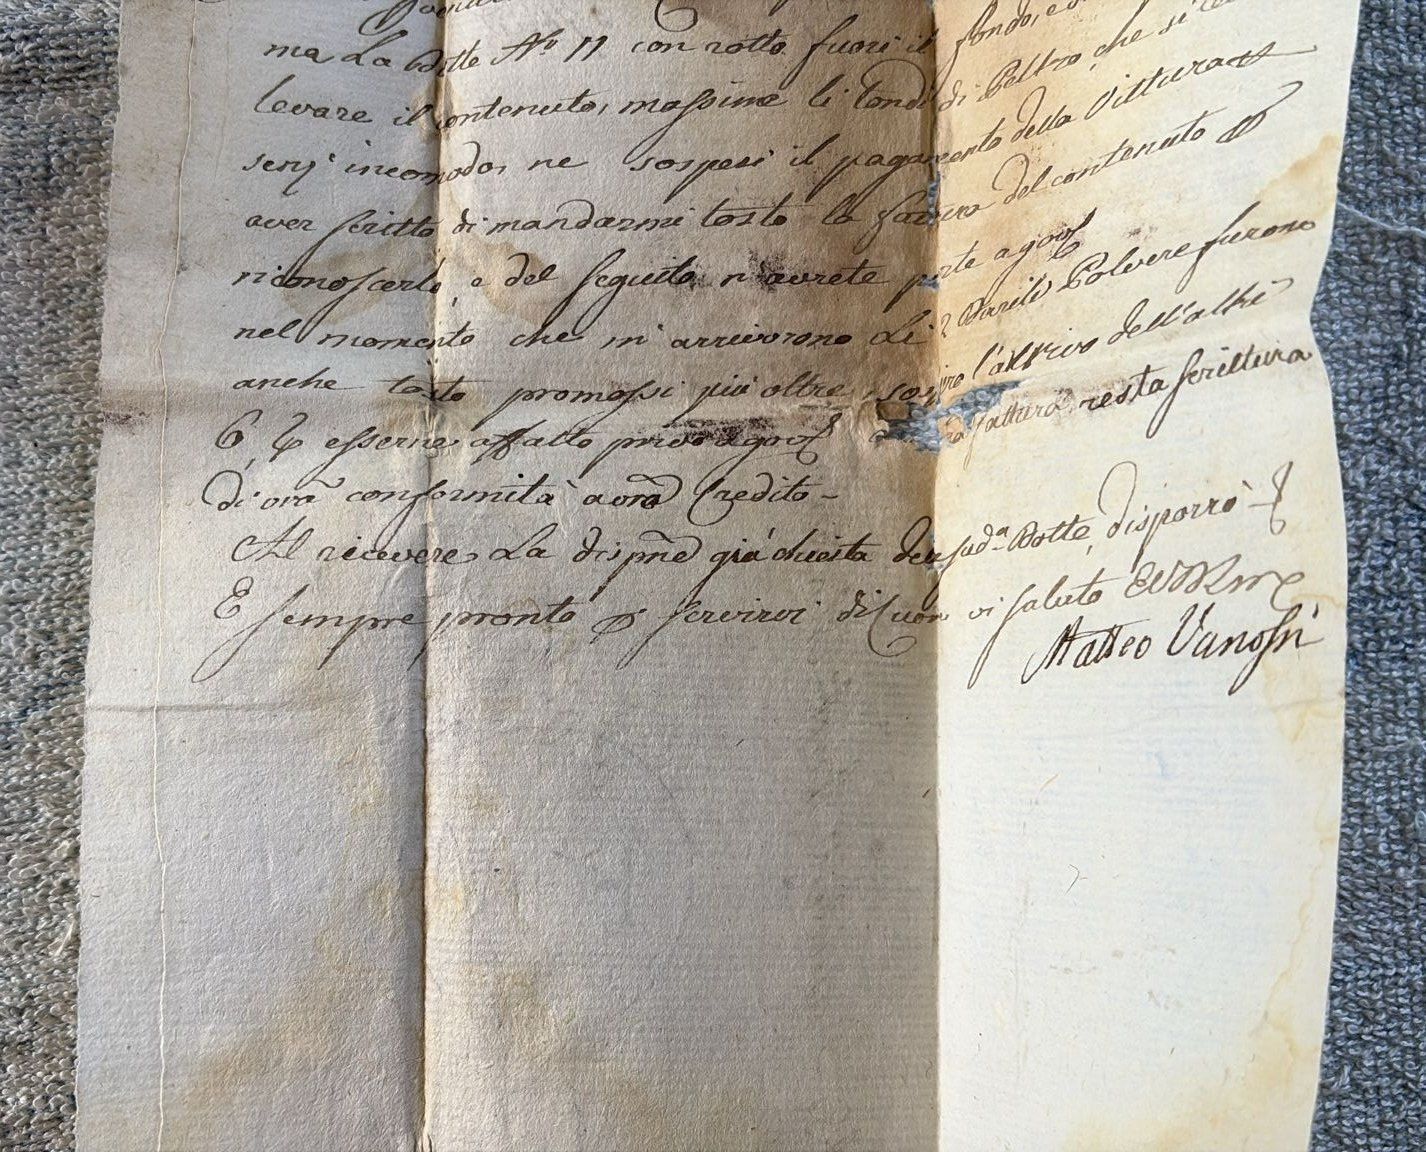 ma La Botte N.o 11 con rotto fuori il fondo, e
levare il contenuto, massime li Tondi di Peltro, che si
senz' incomodo, ne sospesi il pagamento della Vittura
aver scritto di mandarmi tosto la fattura del contenuto
riconoscerlo, e del seguito n'avrete parte
nel momento che m'arrivorono Li 2 Barili Polvere furono
anche tosto promossi più oltre, sospiro l'arrivo dell'altri
6, esserne affatto privo resta scrittura
di ora conformità a vro Credito -
Al ricevere La dispne già chiesta della sud.a Botte, disporrò
E sempre pronto p servirvi di Cuor vi saluto
Matteo Vanossi